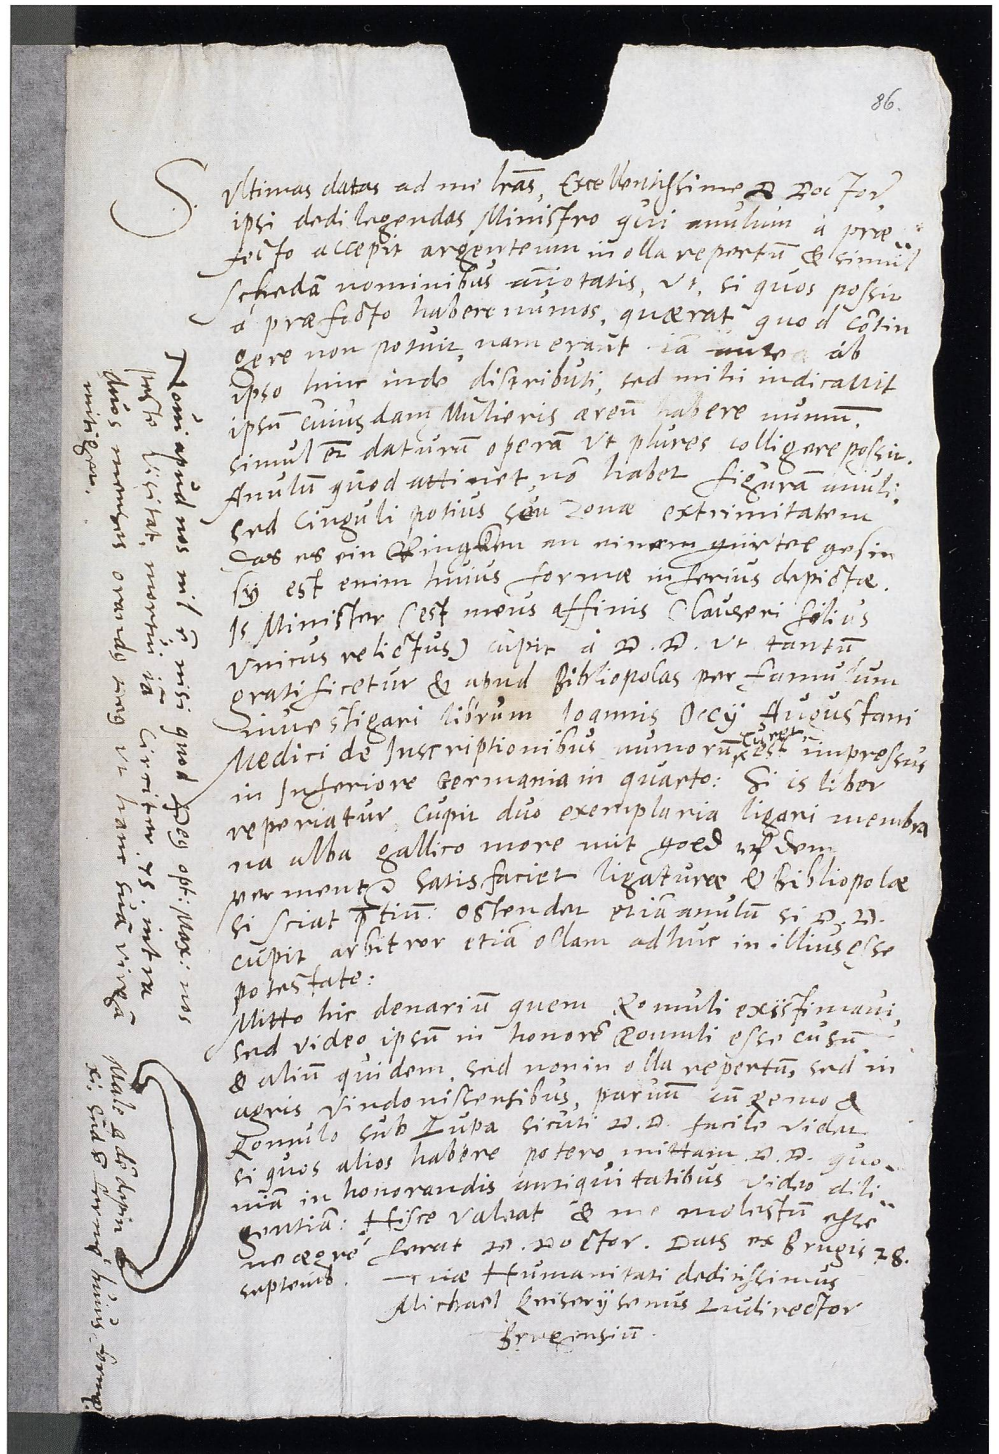 86.
S. Vltimas datas ad me lr̃as, Excellentissime D Doctor,
ipsi dedi legendas Ministro qui anulum à præ
fecto accepit argenteum in olla repertū & simul
schedã nominibus añotatis, vt, si quos possit
à præfecto habere numos, quærat, quod cõtin
gere non potuit, nam erant iã ab
ipso hinc inde distributi, sed mihi indicauit
ipsū cuiusdam Mulieris æreū habere numū.
simul daturū operã vt plures colligere possit.
Anulū quod attinet, nõ habet figurã anuli,
sed cinguli potius seu Zonæ extrimitatem
das es ein Ringken an einem gürtel gesin
sy est enim huius formæ inferius depictæ.
Is Minister (est meus affinis Clauseri filius
vnicus relictus) cupit à D. D. vt tantū
gratificetur & apud Bibliopolas per famulum
inuestigari librum Ioannis Occy Augustani
Medici de Inscriptionibus numorū, est impressus
in Inferiore Germania in quarto: Si is liber
reperiatur, cupit duo exemplaria ligari membra
na alba gallico more mit gold vf dem
perment satisfaciet ligaturæ & Bibliopolæ
si sciat p̃tiū: ostendet etiã anulū si D. D.
cupit arbitror etiã ollam adhuc in illius esse
potestate:
Mitto hic denariū quem Romuli existimaui,
sed video ipsū in honorẽ Romuli esse cusū
& aliū quidem, sed non in olla repertū, sed in
agris Vindonissensibus, paruū cū Remo &
Romulo sub Lupa sicuti D. D. facile videt
si quos alios habere potero mittam D. D. quo
niã in honorandis antiquitatibus video dili
gentiã: Hisce valeat & me molestū esse
ne ægrè ferat D. Doctor. Dats ex Brugis 28.
septemb. Tuæ Humanitati deditissimus
Michael Ludirector
Brugensiū.
Noui apud nos nil ẽ nisi quod Deus opt: Max: nos
peste visitat, mortui iã circiter 75. intra
duos menses orandus vt hanc suã virgã
mitiget.
Male
huius formę